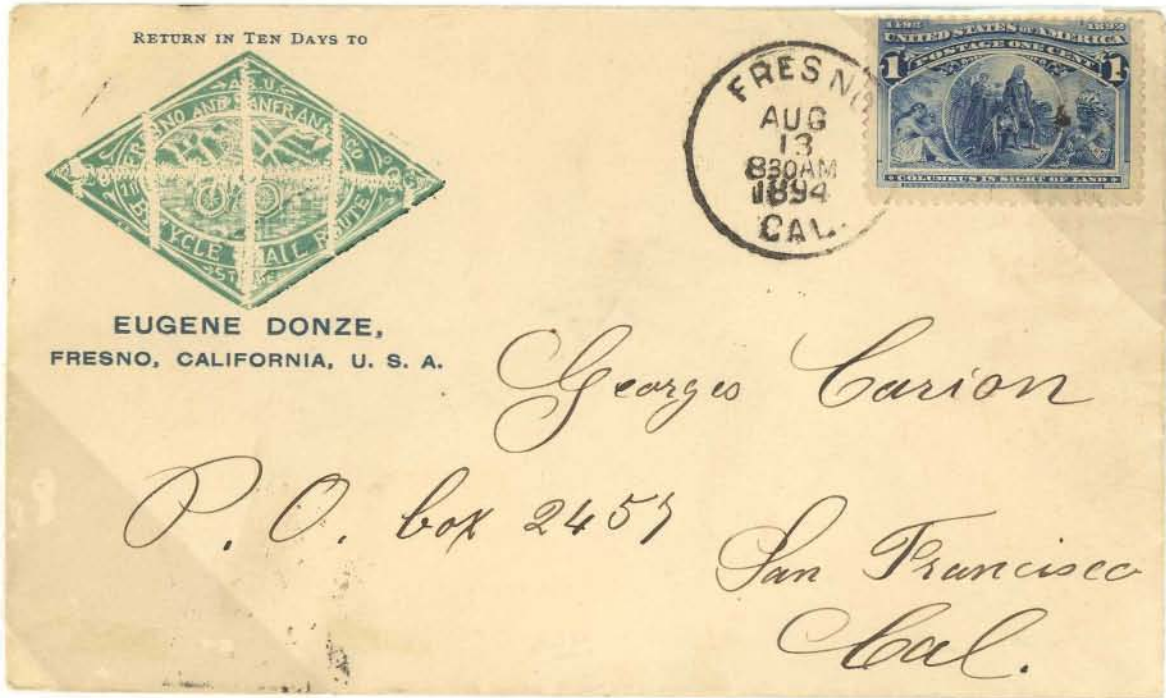 RETURN IN TEN DAYS TO
A.R.U.
FRESNO AND SAN FRANCISCO
BICYCLE MAIL ROUTE
EUGENE DONZE,
FRESNO, CALIFORNIA, U. S. A.
FRESNO
AUG
13
830AM
1894
CAL.
1492 1892
UNITED STATES OF AMERICA
POSTAGE ONE CENT
1 1
COLUMBUS IN SIGHT OF LAND
Georges Carion
P. O. box 2457
San Francisco
Cal.